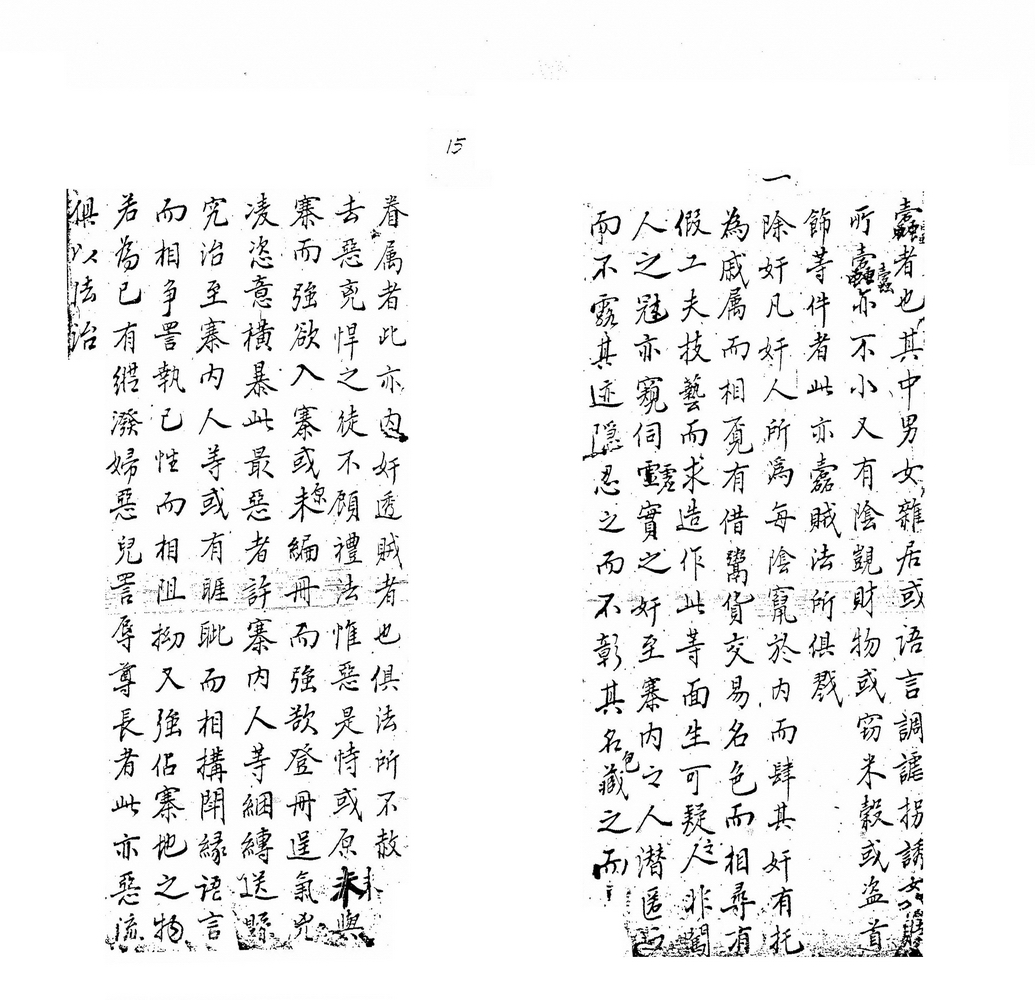 15
蠹者也其中男女雜居或語言調謔拐誘女
所蠹亦不小又有陰覬財物或窃米穀或盗首
飾等件者此亦蠹賊法所俱戮
一除奸凡奸人所爲每陰竄於内而肆其奸有托
為戚属而相覓有借鬻货交易名色而相尋有
假工夫技藝而求造作此等面生可疑之人非闖
人之冦亦窺伺虚實之奸至寨内之人潜匿
而不露其迹隠忍之而不彰其名包藏之而
眷属者此亦内奸透賊者也俱法所不赦
去惡兇悍之徒不顧禮法惟惡是恃或原未與
寨而強欲入寨或原未編冊而強欲登冊逞氣
凌恣意横暴此最惡者許寨内人等綑縛送縣
究治至寨内人等或有睚眦而相搆閗縁语言
而相争詈執已性而相阻拗又強佔寨地之物
若為已有縱潑婦惡兒詈辱尊長者此亦惡流
俱以法治